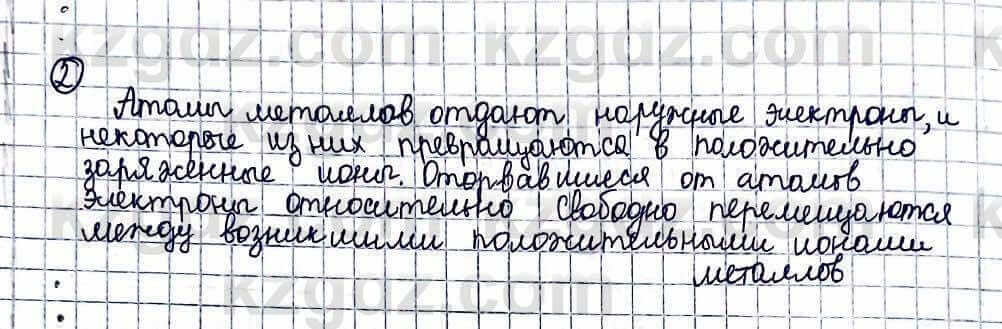 kzgdz.com kzgdz.com
②
Атомы металлов отдают наружные электроны, и
некоторые из них превращаются в положительно
заряженные ионы. Оторвавшиеся от атомов
электроны относительно свободно перемещаются
между возникшими положительными ионами
металлов
kzgdz.com